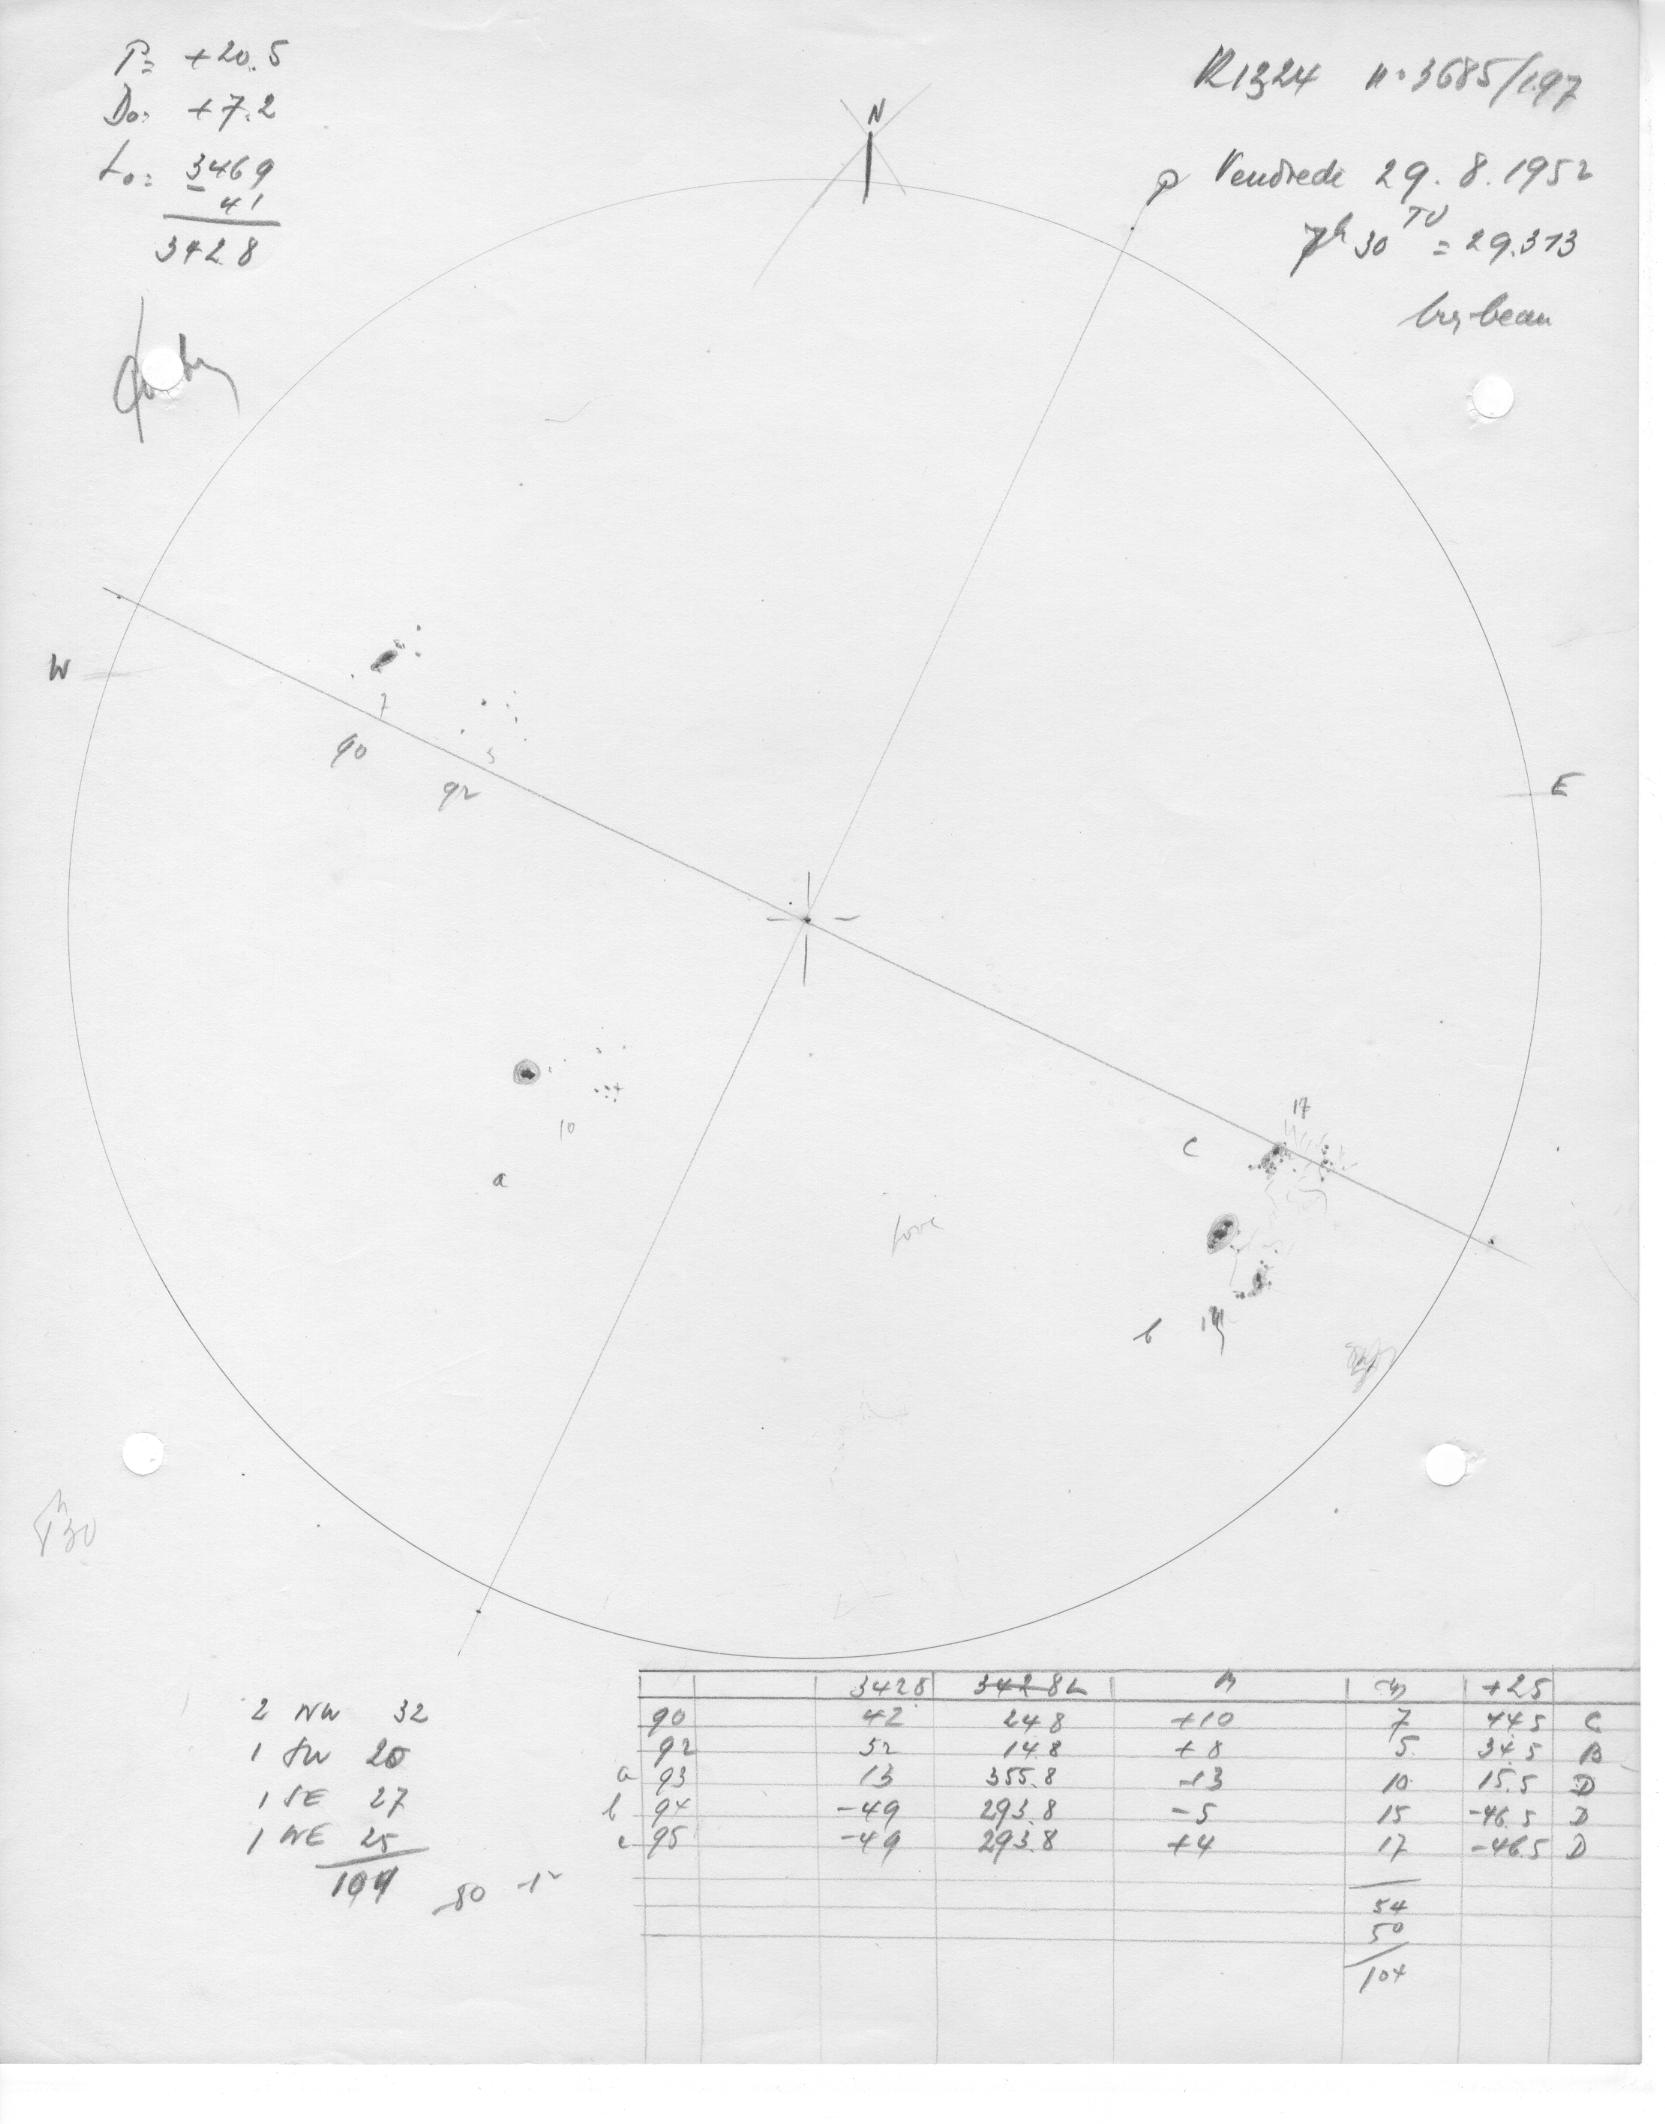 P= +20.5
D₀= +7.2
L₀= 3469
41
3428
R1324 n. 3685/197
Vendredi 29.8.1952
7h30 TU = 29.313
N
P
W
E
7
90
5
92
10
a
17
c
b
2 NW 32
1 SW 20
1 SE 27
1 NE 25
104
3428 3428L +25
90 42 24.8 +10 7 44.5 C
92 52 14.8 +8 5 34.5 B
a 93 13 355.8 -13 10 15.5 D
b 94 -49 293.8 -5 15 -46.5 D
c 95 -49 293.8 +4 17 -46.5 D
54
50
104